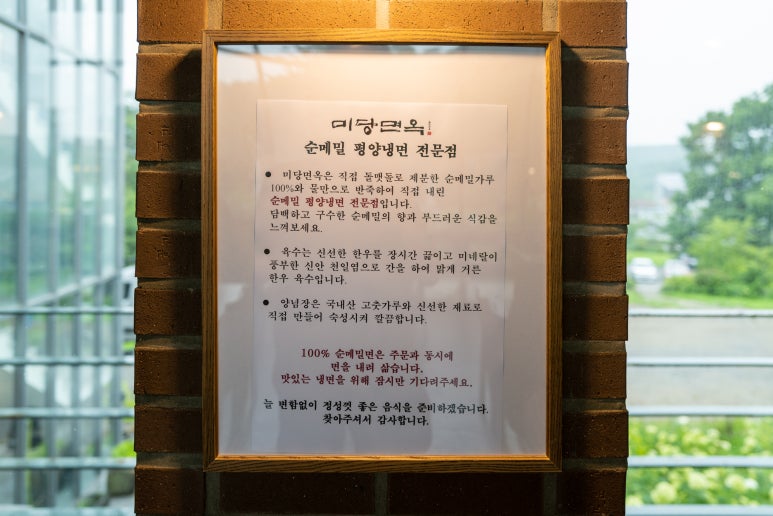 미당면옥
순메밀 평양냉면 전문점
● 미당면옥은 직접 돌맷돌로 제분한 순메밀가루
100%와 물만으로 반죽하여 직접 내린
순메밀 평양냉면 전문점입니다.
담백하고 구수한 순메밀의 향과 부드러운 식감을
느껴보세요.
● 육수는 신선한 한우를 장시간 끓이고 미네랄이
풍부한 신안 천일염으로 간을 하여 맑게 거른
한우 육수입니다.
● 양념장은 국내산 고춧가루와 신선한 재료로
직접 만들어 숙성시켜 깔끔합니다.
100% 순메밀면은 주문과 동시에
면을 내려 삶습니다.
맛있는 냉면을 위해 잠시만 기다려주세요.
늘 변함없이 정성껏 좋은 음식을 준비하겠습니다.
찾아주셔서 감사합니다.